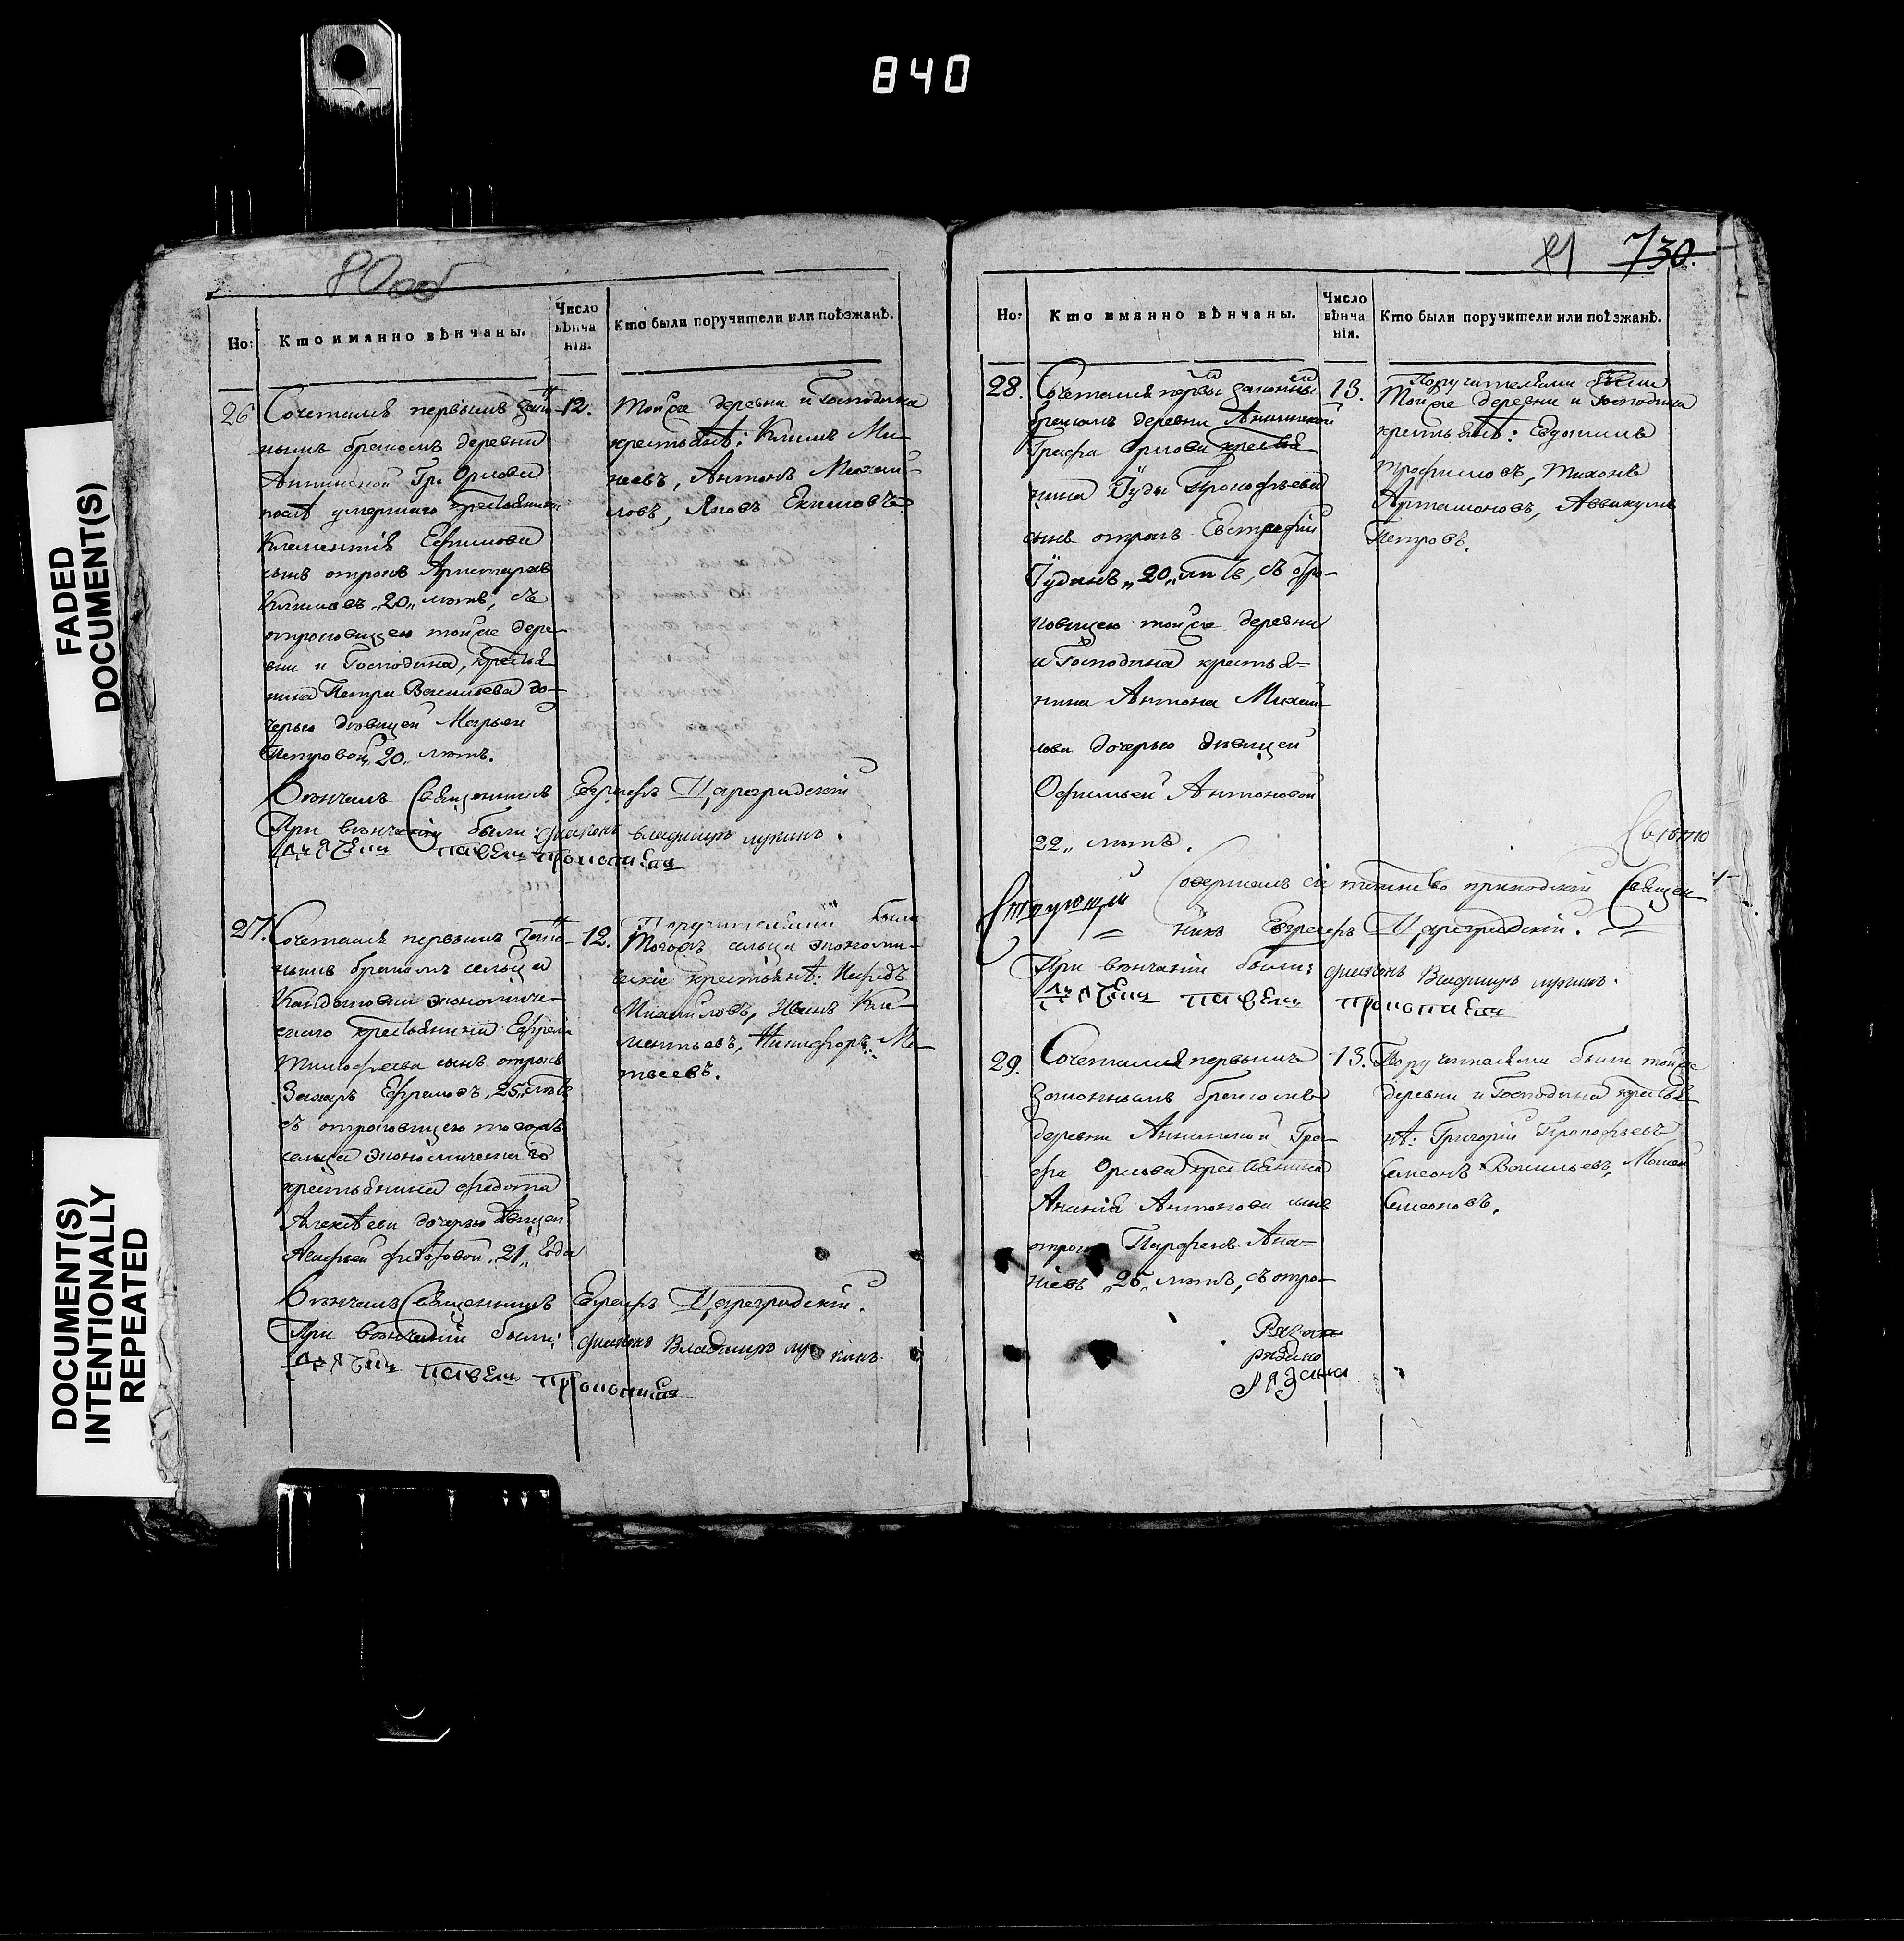 840
FADED
DOCUMENT(S)
DOCUMENT(S)
INTENTIONALLY
REPEATED
80об
Но:
Кто имянно вѣнчаны.
Число
вѣнча
нія.
Кто были поручители или поѣзжанѣ.
26
Сочетался первымъ зако
12.
ннымъ бракомъ деревни
Аннинской Гр. Орлова
послѣ умершаго крестьянина
Климентія Ефимова
сынъ отрокъ Аристархъ
Климовъ „20„ лѣтъ, съ
отроковицею тойже дере-
вни и Господина, крестья-
нина Петра Васильева до-
черью дѣвицей Марьей
Петровой „20„ лѣтъ.
Тойже деревни и Господина
крестьянѣ: Климъ Ми-
неевъ, Антонъ Михаи-
ловъ, Яковъ Екимовъ
Вѣнчалъ Священникъ Евграфъ Цареградскій
При вѣнчаніи были: диаконъ владимиръ лукинъ.
дьячекъ павелъ прокопиевъ
27.
Сочетался первымъ зако-
12.
ннымъ бракомъ сельца
экономиче-
скаго крестьянина Ефрема
Тимофеева сынъ отрокъ
Захаръ Ефремовъ „25„ лѣтъ
съ отроковицею тогожъ
сельца экономическаго
крестьянина федота
Алексѣева дочерью дѣвицей
федотовой „21„ года
Поручителями были
Тогожъ сельца экономи-
ческіе крестьянѣ:
Михайловъ, Иванъ Кли-
ментьевъ, Никифоръ Ма-
твеевъ.
Вѣнчалъ Священникъ Евграфъ Цареградскій.
При вѣнчаніи были: диаконъ Владимиръ лукинъ.
дьячекъ павелъ прокопиевъ
81 730.
Но:
Кто имянно вѣнчаны.
Число
вѣнча
нія.
Кто были поручители или поѣзжанѣ.
28.
Сочетался первымъ законнымъ
13.
бракомъ деревни Аннинской
Графа Орлова крестья-
нина Іуды Прокофьева
сынъ отрокъ Евстрафій
Іудинъ „20„ лѣтъ, съ отро-
ковицею тойже деревни
и Господина крестья-
нина Антона Михаи-
лова дочерью дѣвицей
Офимьей Антоновой
22„ лѣтъ.
Поручителями были
Тойже деревни и Господина
крестьянѣ: Евдокимъ
трофимовъ, Тихонъ
Артамоновъ, Аввакумъ
Петровъ.
Совершалъ сіе таинство приходскій Священ-
никъ Евграфъ Цареградскій.
При вѣнчаніи были: диаконъ Владимиръ лукинъ.
дьячекъ павелъ прокопиевъ
29.
Сочетался первымъ
13.
законнымъ бракомъ
деревни Аннинской Гра-
фа Орлова крестьянина
Ананія Антонова сынъ
отрокъ Парфенъ Ана-
ніевъ „25„ лѣтъ, съ отро-
Поручителями были тойже
деревни и Господина крестья-
нѣ: Григорій Прокофьевъ
Симеонъ Васильевъ,
Симеоновъ.